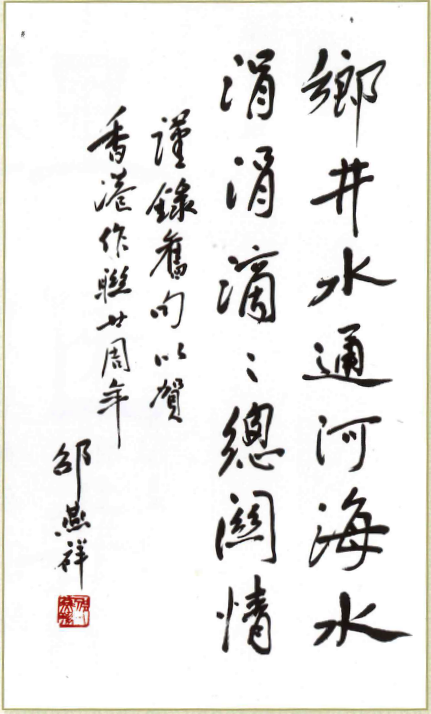 鄉井水通河海水
涓涓滴〻總關情
謹錄舊句以賀
香港作聯廿周年
邵燕祥